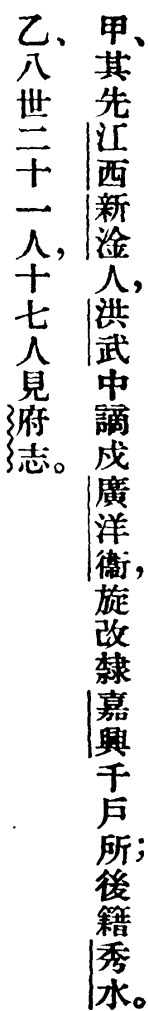 甲、其先江西新淦人，洪武中謫戍廣洋衞，旋改隸嘉興千戶所；後籍秀水。
乙、八世二十一人，十七人見府志。